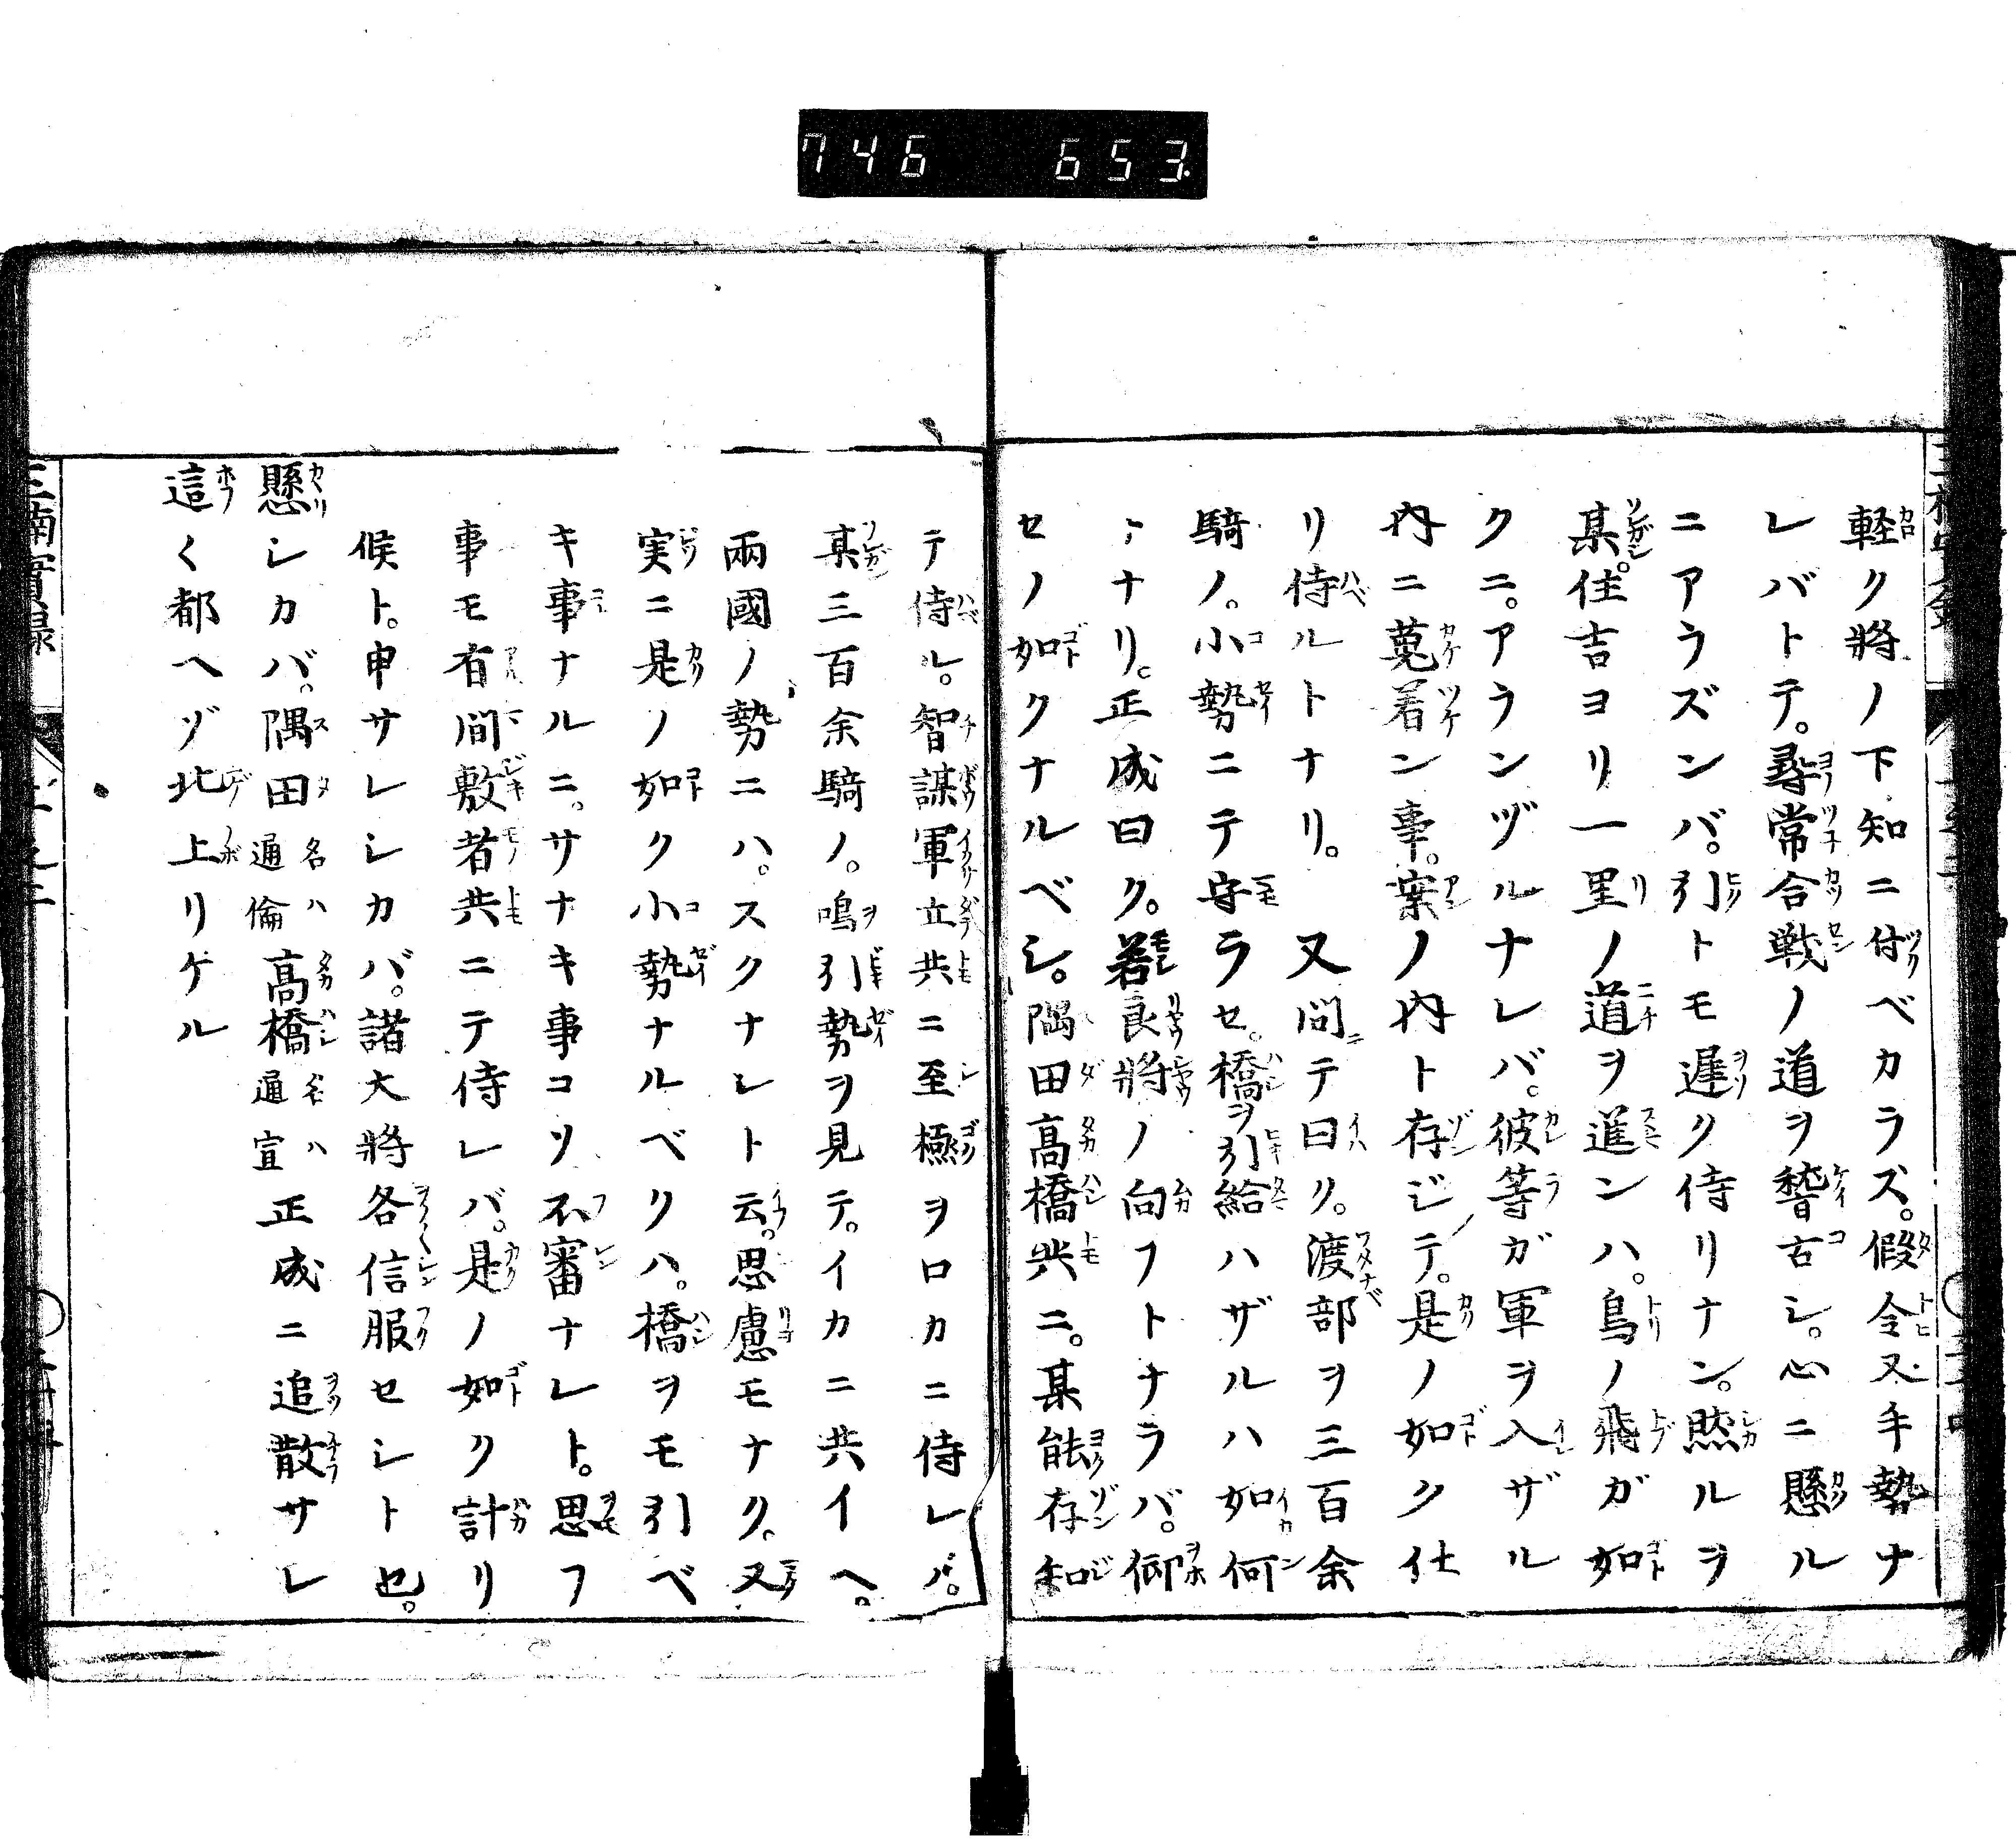 746 653
軽ク將ノ下知ニ付ベカラズ。假令又手勢ナ
レバトテ。尋常合戦ノ道ヲ稽古シ。心ニ懸ル
ニアラズンバ。引トモ遅ク侍リナン。然ルヲ
某。住吉ヨリ一里ノ道ヲ進ンハ。鳥ノ飛ガ如
クニ。アランヅルナレバ。彼等ガ軍ヲ入ザル
内ニ蒐着ン事。案ノ内ト存ジテ。是ノ如ク仕
リ侍ルトナリ。 又問テ曰ク。渡部ヲ三百余
騎ノ。小勢ニテ守ラセ。橋ヲ引給ハザルハ如何
ヽナリ。正成曰ク。若良將ノ向フトナラバ。仰
セノ如クナルベシ。隅田高橋共ニ。某能存知
テ侍ル。智謀軍立共ニ至極ヲロカニ侍レバ。
某三百余騎ノ。鳴引勢ヲ見テ。イカニ共イヘ。
兩國ノ勢ニハ。スクナシト云。思慮モナク。又
実ニ是ノ如ク小勢ナルベクハ。橋ヲモ引ベ
キ事ナルニ。サナキ事コソ不審ナレト。思フ
事モ有間敷者共ニテ侍レバ。是ノ如ク計リ
候ト。申サレシカバ。諸大將各信服セシト也。
懸シカバ。隅田名ハ通倫高橋名ハ通宣正成ニ追散サレ
這く都ヘゾ北上リケル
三楠實録